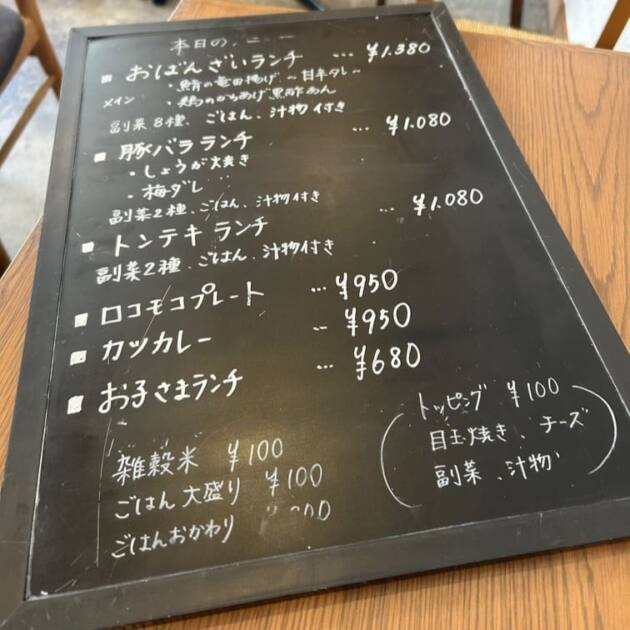 本日の
■ おばんざいランチ … ¥1.380
メイン ・鯖の竜田揚げ 〜甘辛ダレ〜
・鶏のからあげ黒酢あん
副菜8種、ごはん、汁物付き
■ 豚バラランチ … ¥1.080
・しょうが焼き
・梅ダレ
副菜2種、ごはん、汁物付き
■ トンテキランチ … ¥1.080
副菜2種、ごはん、汁物付き
■ ロコモコプレート … ¥950
■ カツカレー … ¥950
■ お子さまランチ … ¥680
雑穀米 ¥100
ごはん大盛り ¥100
ごはんおかわり
トッピング ¥100
目玉焼き、チーズ
副菜、汁物